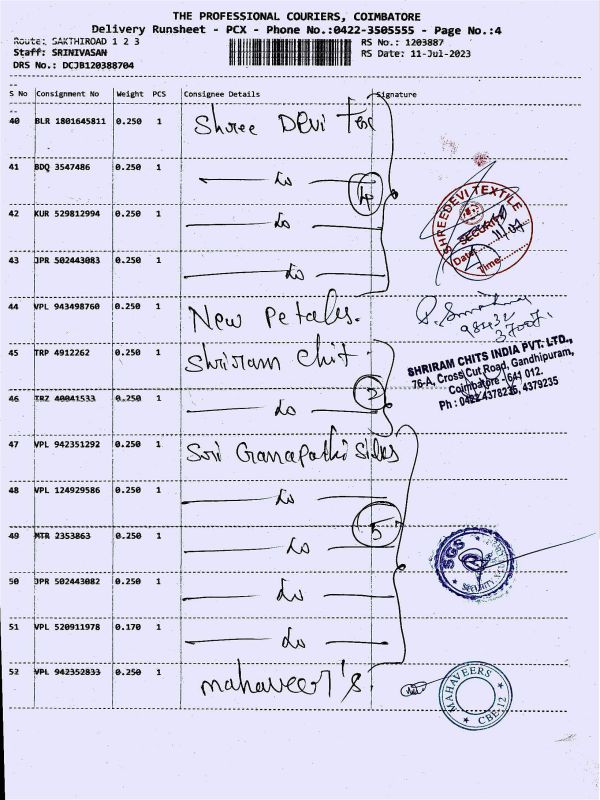 THE PROFESSIONAL COURIERS, COIMBATORE
Delivery Runsheet - PCX - Phone No.:0422-3505555 - Page No.:4
Route: SAKTHIROAD 1 2 3
RS No.: 1203887
Staff: SRINIVASAN
RS Date: 11-Jul-2023
DRS No.: DCJB120388704
S No Consignment No Weight PCS Consignee Details Signature
40 BLR 1801645811 0.250 1 Shree Devi Tex
41 BDQ 3547486 0.250 1 — do —
4
42 KUR 529812994 0.250 1 — do —
43 JPR 502443083 0.250 1 — do —
SHREEDEVI TEXTILE
SECURITY
Date:
Time:
44 VPL 943498760 0.250 1 New Petals.
98432
37007
45 TRP 4912262 0.250 1 Shriram Chit.
SHRIRAM CHITS INDIA PVT. LTD.,
76-A, Cross Cut Road, Gandhipuram,
Coimbatore - 641 012.
Ph : 0422 4378235, 4379235
2
46 TRZ 40041533 0.250 1 — do —
47 VPL 942351292 0.250 1 Sri Ganapathi Silks
48 VPL 124929586 0.250 1 — do —
5
49 MTR 2353863 0.250 1 — do —
SGS
SECURITY
50 JPR 502443082 0.250 1 — do —
51 VPL 520911978 0.170 1 — do —
52 VPL 942352833 0.250 1 mahaveer's.
MAHAVEERS
CBE-12